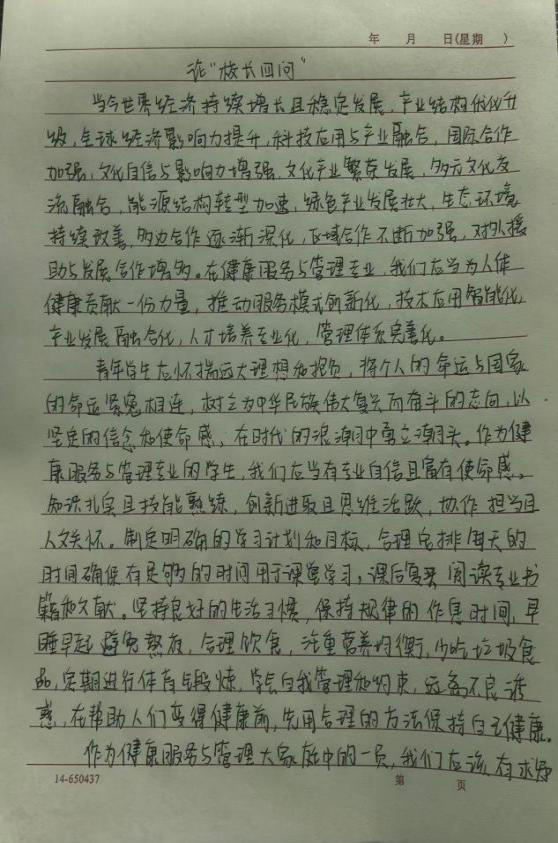 年 月 日(星期 )
论“校长四问”
当今世界经济持续增长且稳定发展,产业结构优化升
级,全球经济影响力提升,科技应用与产业融合,国际合作
加强,文化自信与影响力增强,文化产业繁荣发展,多元文化交
流融合,能源结构转型加速,绿色产业发展壮大,生态环境
持续改善,多边合作逐渐深化,区域合作不断加强,对外援
助与发展合作增多。在健康服务与管理专业,我们应当为人体
健康贡献一份力量,推动服务模式创新化,技术应用智能化,
产业发展融合化,人才培养专业化,管理体系完善化。
青年学生应怀揣远大理想和抱负,将个人的命运与国家
的命运紧密相连,树立为中华民族伟大复兴而奋斗的志向,以
坚定的信念和使命感,在时代的浪潮中勇立潮头。作为健
康服务与管理专业的学生,我们应当有专业自信且富有使命感。
知识扎实且技能熟练,创新进取且思维活跃,协作担当且
人文关怀。制定明确的学习计划和目标,合理安排每天的
时间确保有足够的时间用于课堂学习,课后复习阅读专业书
籍和文献。坚持良好的生活习惯,保持规律的作息时间,早
睡早起避免熬夜,合理饮食,注重营养均衡,少吃垃圾食
品,定期进行体育锻炼,学会自我管理和约束,远离不良诱
惑,在帮助人们变得健康前,先用合理的方法保持自己健康。
作为健康服务与管理大家庭中的一员,我们应该有求知
14-650437 第 页